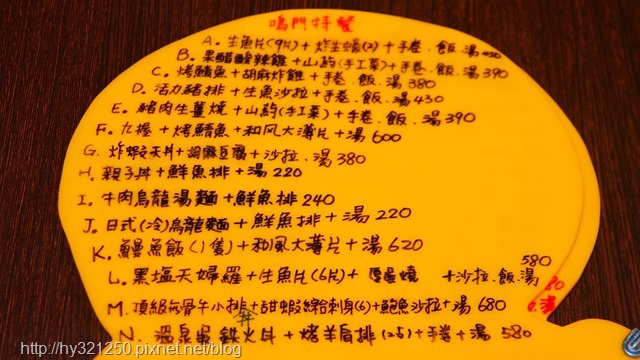 鳴門特餐
A. 生魚片(9片)+炸生蠔(2)+手卷.飯.湯 450
B. 果醋酸辣雞+山藥(手工菜)+手卷.飯.湯 390
C. 烤鯖魚+胡麻炸雞+手卷.飯.湯 380
D. 活力豬排+生魚沙拉+手卷.飯.湯 430
E. 豬肉生薑燒+山藥(手工菜)+手卷.飯.湯 390
F. 九握+烤鯖魚+和風大薄片+湯 600
G. 炸蝦天丼+胡麻豆腐+沙拉.湯 380
H. 親子丼+鮮魚排+湯 220
I. 牛肉烏龍湯麵+鮮魚排 240
J. 日式(冷)烏龍麵+鮮魚排+湯 220
K. 鰻魚飯(1隻)+和風大薄片+湯 620
580
L. 黑塩天婦羅+生魚片(6片)+ 燒 +沙拉.飯.湯
M. 頂級無骨牛小排+甜蝦綜合刺身(6)+鮑魚沙拉+湯 680
N. 溫泉蛋鉄火丼+烤羊肩排(2支)+手卷+湯 580
http://hy321250.pixnet.net/blog